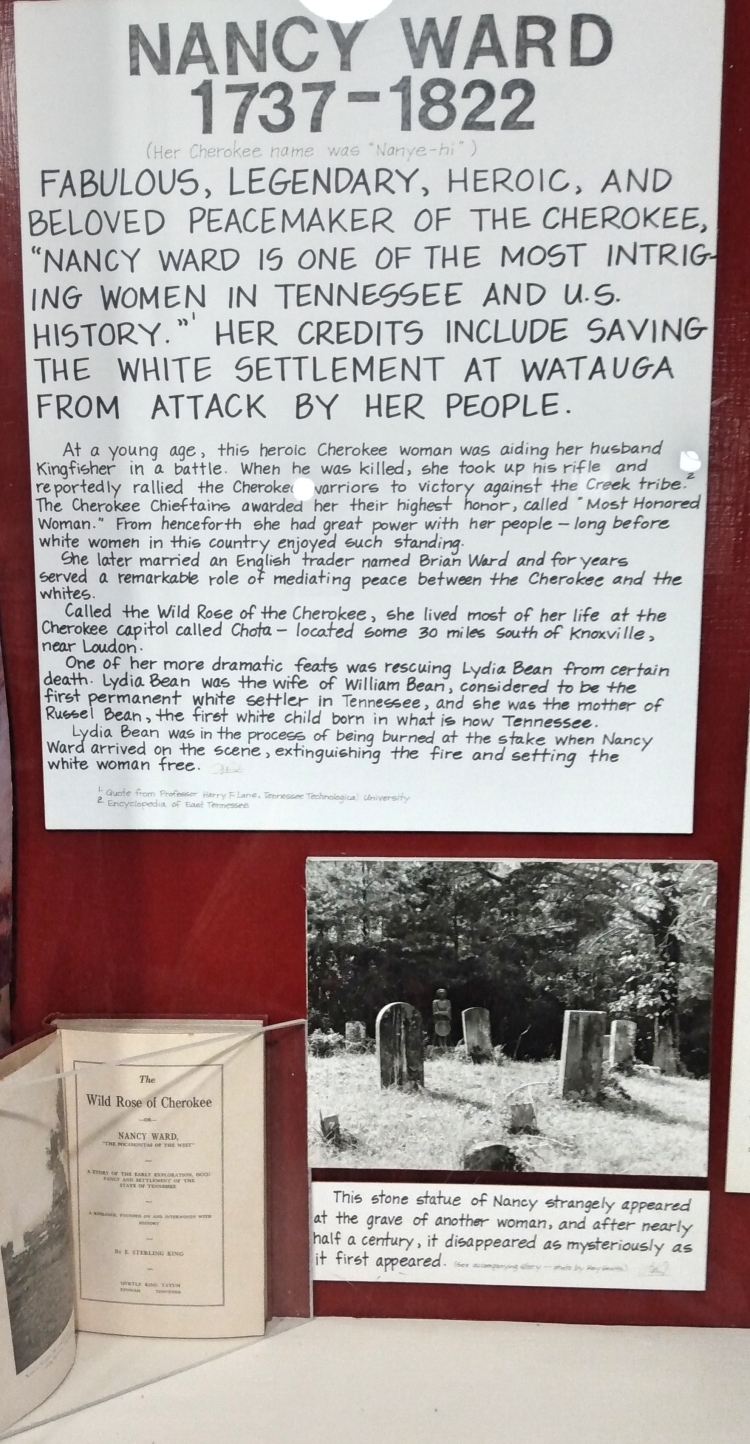 NANCY WARD
1737-1822
(Her Cherokee name was "Nanye-hi")
FABULOUS, LEGENDARY, HEROIC, AND
BELOVED PEACEMAKER OF THE CHEROKEE,
"NANCY WARD IS ONE OF THE MOST INTRIG-
ING WOMEN IN TENNESSEE AND U.S.
HISTORY."¹ HER CREDITS INCLUDE SAVING
THE WHITE SETTLEMENT AT WATAUGA
FROM ATTACK BY HER PEOPLE.
At a young age, this heroic Cherokee woman was aiding her husband
Kingfisher in a battle. When he was killed, she took up his rifle and
reportedly rallied the Cherokee warriors to victory against the Creek tribe.²
The Cherokee Chieftains awarded her their highest honor, called "Most Honored
Woman." From henceforth she had great power with her people – long before
white women in this country enjoyed such standing.
She later married an English trader named Brian Ward and for years
served a remarkable role of mediating peace between the Cherokee and the
whites.
Called the Wild Rose of the Cherokee, she lived most of her life at the
Cherokee capitol called Chota – located some 30 miles south of Knoxville,
near Loudon.
One of her more dramatic feats was rescuing Lydia Bean from certain
death. Lydia Bean was the wife of William Bean, considered to be the
first permanent white settler in Tennessee, and she was the mother of
Russel Bean, the first white child born in what is now Tennessee.
Lydia Bean was in the process of being burned at the stake when Nancy
Ward arrived on the scene, extinguishing the fire and setting the
white woman free.
1. Quote from Professor Harry F. Lane, Tennessee Technological University
2. Encyclopedia of East Tennessee
The
Wild Rose of Cherokee
—OR—
NANCY WARD,
"THE POCAHONTAS OF THE WEST"
A STORY OF THE EARLY EXPLORATION, OCCU-
PANCY AND SETTLEMENT OF THE
STATE OF TENNESSEE
A ROMANCE, FOUNDED ON AND INTERWOVEN WITH
HISTORY
By E. STERLING KING
MYRTLE KING TATUM
This stone statue of Nancy strangely appeared
at the grave of another woman, and after nearly
half a century, it disappeared as mysteriously as
it first appeared. (See accompanying story – photo by